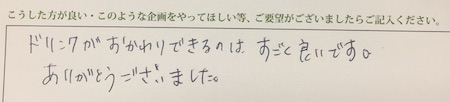 こうした方が良い・このような企画をやってほしい等、ご要望がございましたらご記入ください。
ドリンクがおかわりできるのは すごく良いです。
ありがとうございました。